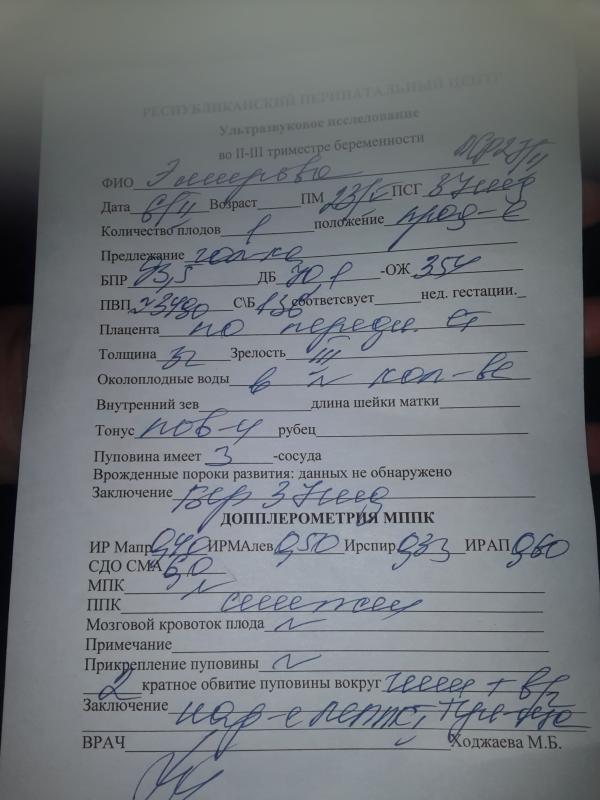 РЕСПУБЛИКАНСКИЙ ПЕРИНАТАЛЬНЫЙ ЦЕНТР
Ультразвуковое исследование
во II-III триместре беременности
ФИО
Дата 6/II Возраст ПМ 23/V ПСГ 37нед
Количество плодов 1 положение прод-е
Предлежание голка
БПР 93,5 ДБ 70,1 -ОЖ 354
ПВП ~3490 С\Б 136 соответсвует нед. гестации.
Плацента по передн. ст
Толщина Зрелость III
Околоплодные воды в N кол-ве
Внутренний зев длина шейки матки
Тонус пов-н рубец
Пуповина имеет 3 -сосуда
Врожденные пороки развития: данных не обнаружено
Заключение Бер 37нед
ДОППЛЕРОМЕТРИЯ МППК
ИР Мапр 0,40 ИРМАлев 0,50 Ирспир 0,33 ИРАП 0,60
СДО СМА
МПК N
ППК снижен
Мозговой кровоток плода N
Примечание
Прикрепление пуповины N
2 кратное обвитие пуповины вокруг шеи +
Заключение
ВРАЧ Ходжаева М.Б.